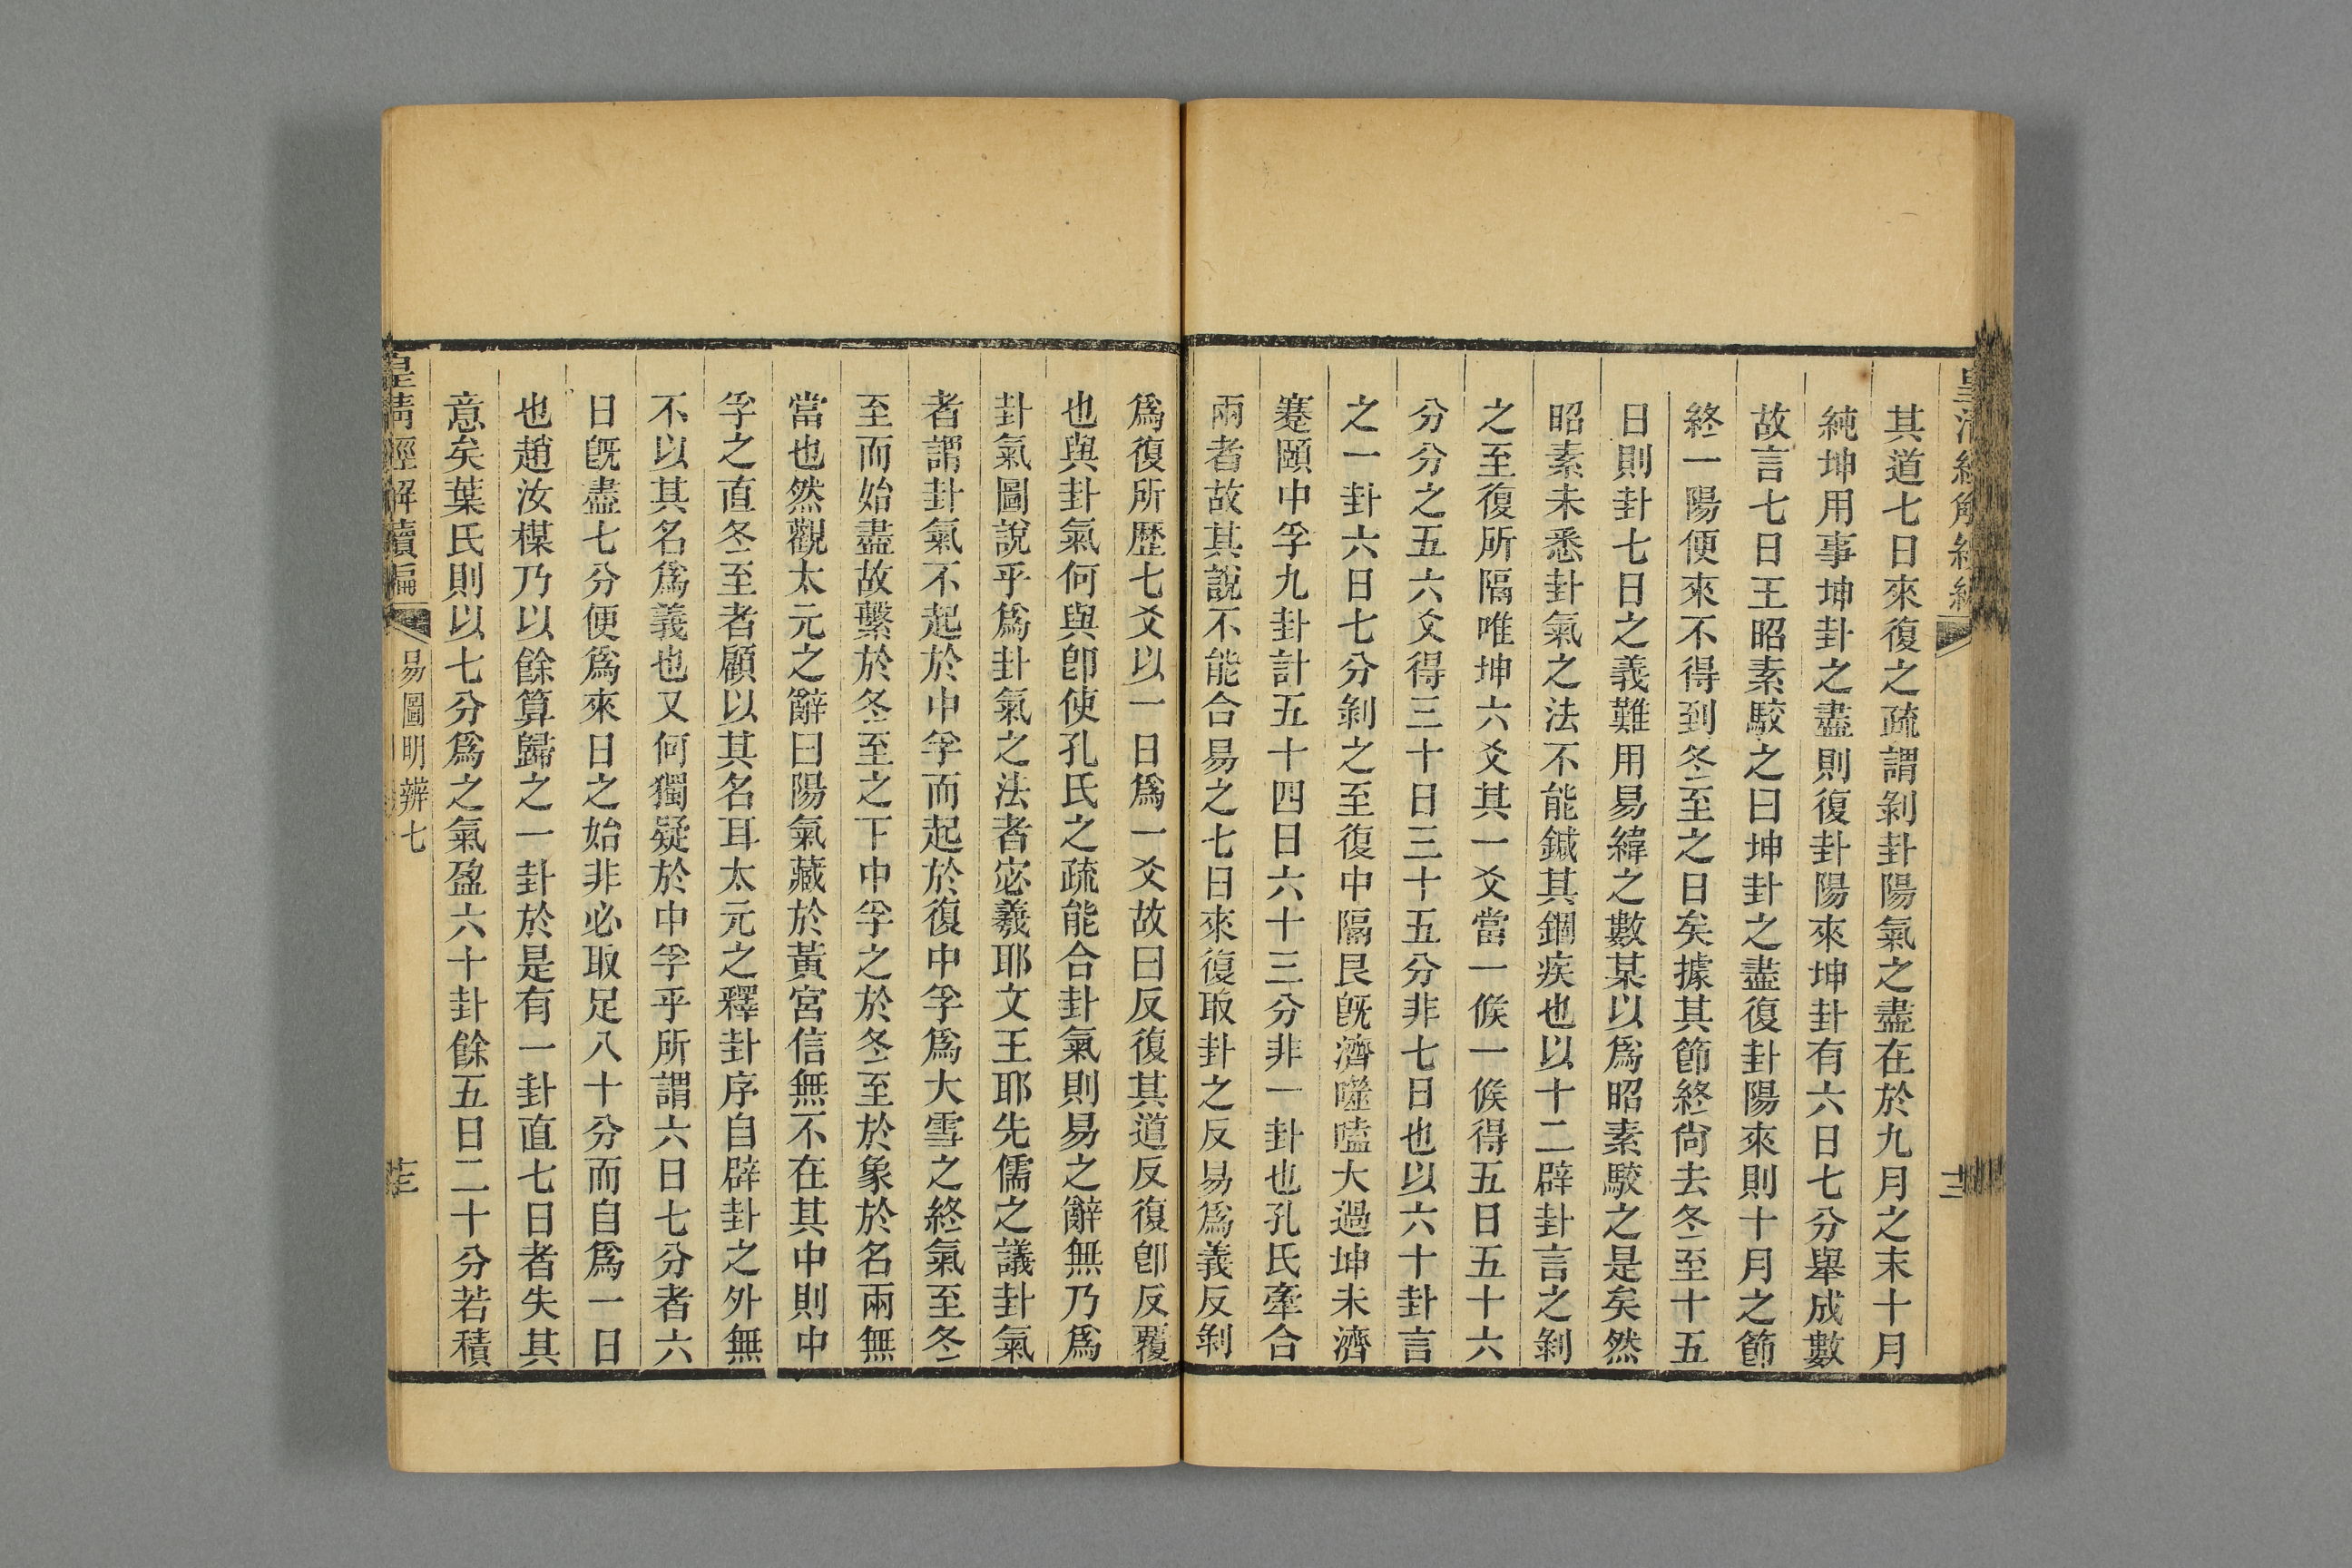 其道七日來復之疏謂剝卦陽氣之盡在於九月之末十月
純坤用事坤卦之盡則復卦陽來坤卦有六日七分舉成數
故言七日王昭素駮之曰坤卦之盡復卦陽來則十月之節
終一陽便來不得到冬至之日矣據其節終尙去冬至十五
日則卦七日之義難用易緯之數某以爲昭素駮之是矣然
昭素未悉卦氣之法不能鍼其錮疾也以十二辟卦言之剝
之至復所隔唯坤六爻其一爻當一候一候得五日五十六
分分之五六爻得三十日三十五分非七日也以六十卦言
之一卦六日七分剝之至復中隔艮旣濟噬嗑大過坤未濟
蹇頤中孚九卦計五十四日六十三分非一卦也孔氏牽合
兩者故其說不能合易之七日來復取卦之反易爲義反剝
爲復所歷七爻以一日爲一爻故曰反復其道反復卽反覆
也與卦氣何與卽使孔氏之疏能合卦氣則易之辭無乃爲
卦氣圖說乎爲卦氣之法者宓羲耶文王耶先儒之議卦氣
者謂卦氣不起於中孚而起於復中孚爲大雪之終氣至冬
至而始盡故繫於冬至之下中孚之於冬至於象於名兩無
當也然觀太元之辭曰陽氣藏於黃宮信無不在其中則中
孚之直冬至者顧以其名耳太元之釋卦序自辟卦之外無
不以其名爲義也又何獨疑於中孚乎所謂六日七分者六
日旣盡七分便爲來日之始非必取足八十分而自爲一日
也趙汝楳乃以餘算歸之一卦於是有一卦直七日者失其
意矣葉氏則以七分爲之氣盈六十卦餘五日二十分若積
皇清經解續編 易圖明辨七